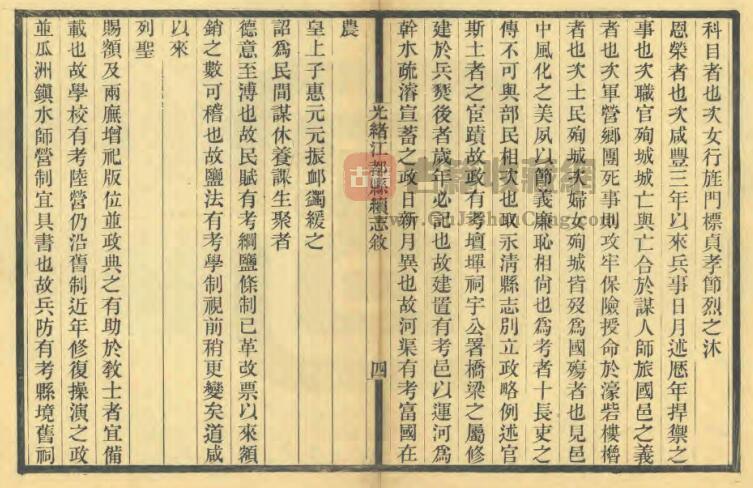 科目者也次女行旌門標貞孝節烈之沐
恩榮者也次咸豐三年以來兵事日月述歷年捍禦之
事也次職官殉城城亡與亡合於謀人師旅國邑之義
者也次軍營鄉團死事則攻牢保險授命於濠砦樓櫓
者也次士民殉城次婦女殉城皆歿為國殤者也見邑
中風化之美夙以節義廉恥相尚也為考者十長吏之
傳不可與部民相次也取永清縣志別立政略例述官
斯土者之宦蹟故政有考壇墠祠宇公署橋梁之屬修
建於兵燹後者歲年必記也故建置有考邑以運河為
幹水疏濬宣蓄之政日新月異也故河渠有考富國在
光緒江都縣續志敘
四
農
皇上子惠元元振卹蠲緩之
詔為民間謀休養課生聚者
德意至溥也故民賦有考綱鹽條制已革改票以來額
銷之數可稽也故鹽法有考學制視前稍更變矣道咸
以來
列聖
賜額及兩廡增祀版位並政典之有助於敎士者宜備
載也故學校有考陸營仍沿舊制近年修復操演之政
並瓜洲鎮水師營制宜具書也故兵防有考縣境舊祠
古籍
收藏網
GuJiShuCang.com